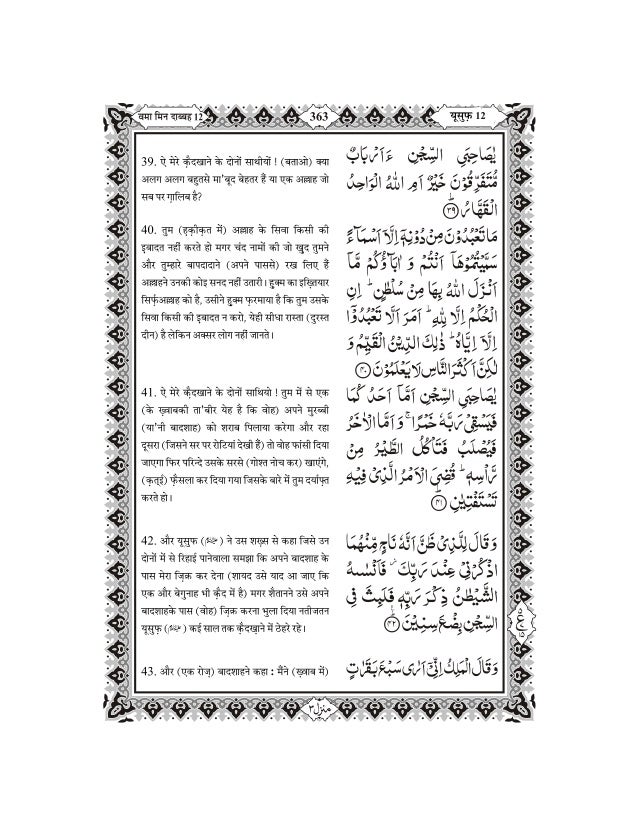 वमा मिन दाब्बह 12
363
यूसुफ़ 12
39. ऐ मेरे क़ैदखाने के दोनों साथीयों ! (बताओ) क्या
अलग अलग बहुतसे मा'बूद बेहतर हैं या एक अल्लाह जो
सब पर ग़ालिब है?
40. तुम (हक़ीक़त में) अल्लाह के सिवा किसी की
इबादत नहीं करते हो मगर चंद नामों की जो खुद तुमने
और तुम्हारे बापदादाने (अपने पाससे) रख लिए हैं
अल्लाहने उनकी कोई सनद नहीं उतारी। हुक्म का इख़्तियार
सिर्फ़अल्लाह को है, उसीने हुक्म फ़रमाया है कि तुम उसके
सिवा किसी की इबादत न करो, येही सीधा रास्ता (दुरस्त
दीन) है लेकिन अक्सर लोग नहीं जानते।
41. ऐ मेरे क़ैदखाने के दोनों साथियो ! तुम में से एक
(के ख़्वाबकी ता'बीर येह है कि वोह) अपने मुरब्बी
(या'नी बादशाह) को शराब पिलाया करेगा और रहा
दूसरा (जिसने सर पर रोटियां देखी हैं) तो वोह फांसी दिया
जाएगा फिर परिन्दे उसके सरसे (गोश्त नोच कर) खाएंगे,
(क़तई) फ़ैसला कर दिया गया जिसके बारे में तुम दर्याफ़्त
करते हो।
42. और यूसुफ़ () ने उस शख़्स से कहा जिसे उन
दोनों में से रिहाई पानेवाला समझा कि अपने बादशाह के
पास मेरा ज़िक्र कर देना (शायद उसे याद आ जाए कि
एक और बेगुनाह भी क़ैद में है) मगर शैतानने उसे अपने
बादशाहके पास (वोह) ज़िक्र करना भुला दिया नतीजतन
यूसुफ़ () कई साल तक क़ैदखाने में ठेहरे रहे।
43. और (एक रोज़) बादशाहने कहा : मैंने (ख़्वाब में)
يٰصَاحِبَيِ السِّجْنِ ءَاَرْبَابٌ
مُّتَفَرِّقُوْنَ خَيْرٌ اَمِ اللّٰهُ الْوَاحِدُ
الْقَهَّارُ ﴿۳۹﴾
مَا تَعْبُدُوْنَ مِنْ دُوْنِهٖۤ اِلَّاۤ اَسْمَآءً
سَمَّيْتُمُوْهَاۤ اَنْتُمْ وَ اٰبَآؤُكُمْ مَّاۤ
اَنْزَلَ اللّٰهُ بِهَا مِنْ سُلْطٰنٍ ؕ اِنِ
الْحُكْمُ اِلَّا لِلّٰهِ ؕ اَمَرَ اَلَّا تَعْبُدُوْۤا
اِلَّاۤ اِيَّاهُ ؕ ذٰلِكَ الدِّيْنُ الْقَيِّمُ وَ
لٰكِنَّ اَكْثَرَ النَّاسِ لَا يَعْلَمُوْنَ ﴿۴۰﴾
يٰصَاحِبَيِ السِّجْنِ اَمَّاۤ اَحَدُ كُمَا
فَيَسْقِىْ رَبَّهٗ خَمْرًا ۚ وَ اَمَّا الْاٰخَرُ
فَيُصْلَبُ فَتَاْكُلُ الطَّيْرُ مِنْ
رَّاْسِهٖ ؕ قُضِىَ الْاَمْرُ الَّذِىْ فِيْهِ
تَسْتَفْتِيٰنِ ﴿۴۱﴾
وَ قَالَ لِلَّذِىْ ظَنَّ اَنَّهٗ نَاجٍ مِّنْهُمَا
اذْكُرْنِىْ عِنْدَ رَبِّكَ ؗ فَاَنْسٰىهُ
الشَّيْطٰنُ ذِكْرَ رَبِّهٖ فَلَبِثَ فِى
السِّجْنِ بِضْعَ سِنِيْنَ ﴿۴۲﴾
وَ قَالَ الْمَلِكُ اِنِّىْۤ اَرٰى سَبْعَ بَقَرٰتٍ
ع
منزل ۳